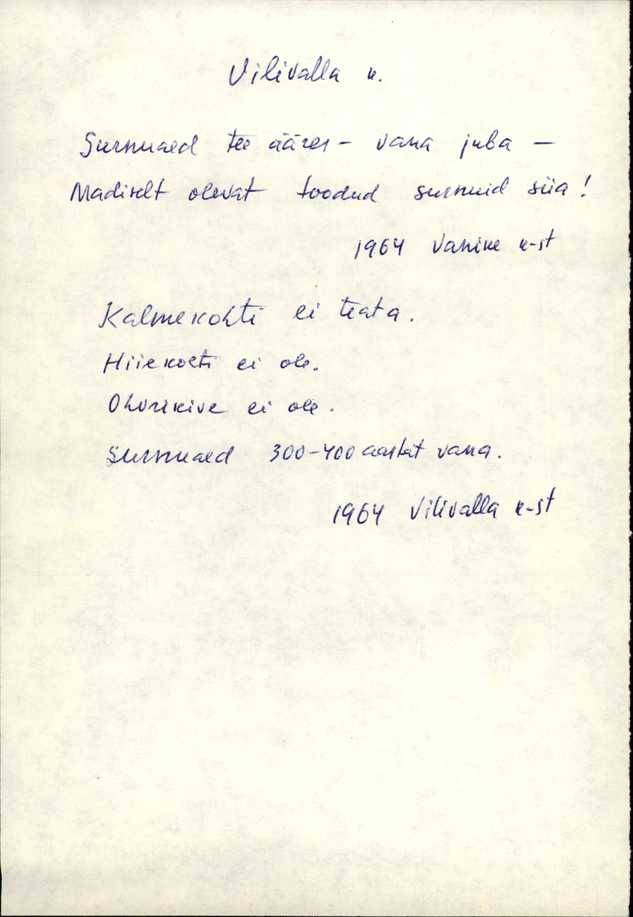 Vilivalla k.
Surnuaed tee ääres - vana juba -
Madiselt olevat toodud surnuid siia!
1964 Vanine k-st
Kalmekohti ei teata.
Hiiekohti ei ole.
Ohvrikive ei ole.
Surnuaed 300-400 aastat vana.
1964 Vilivalla k-st